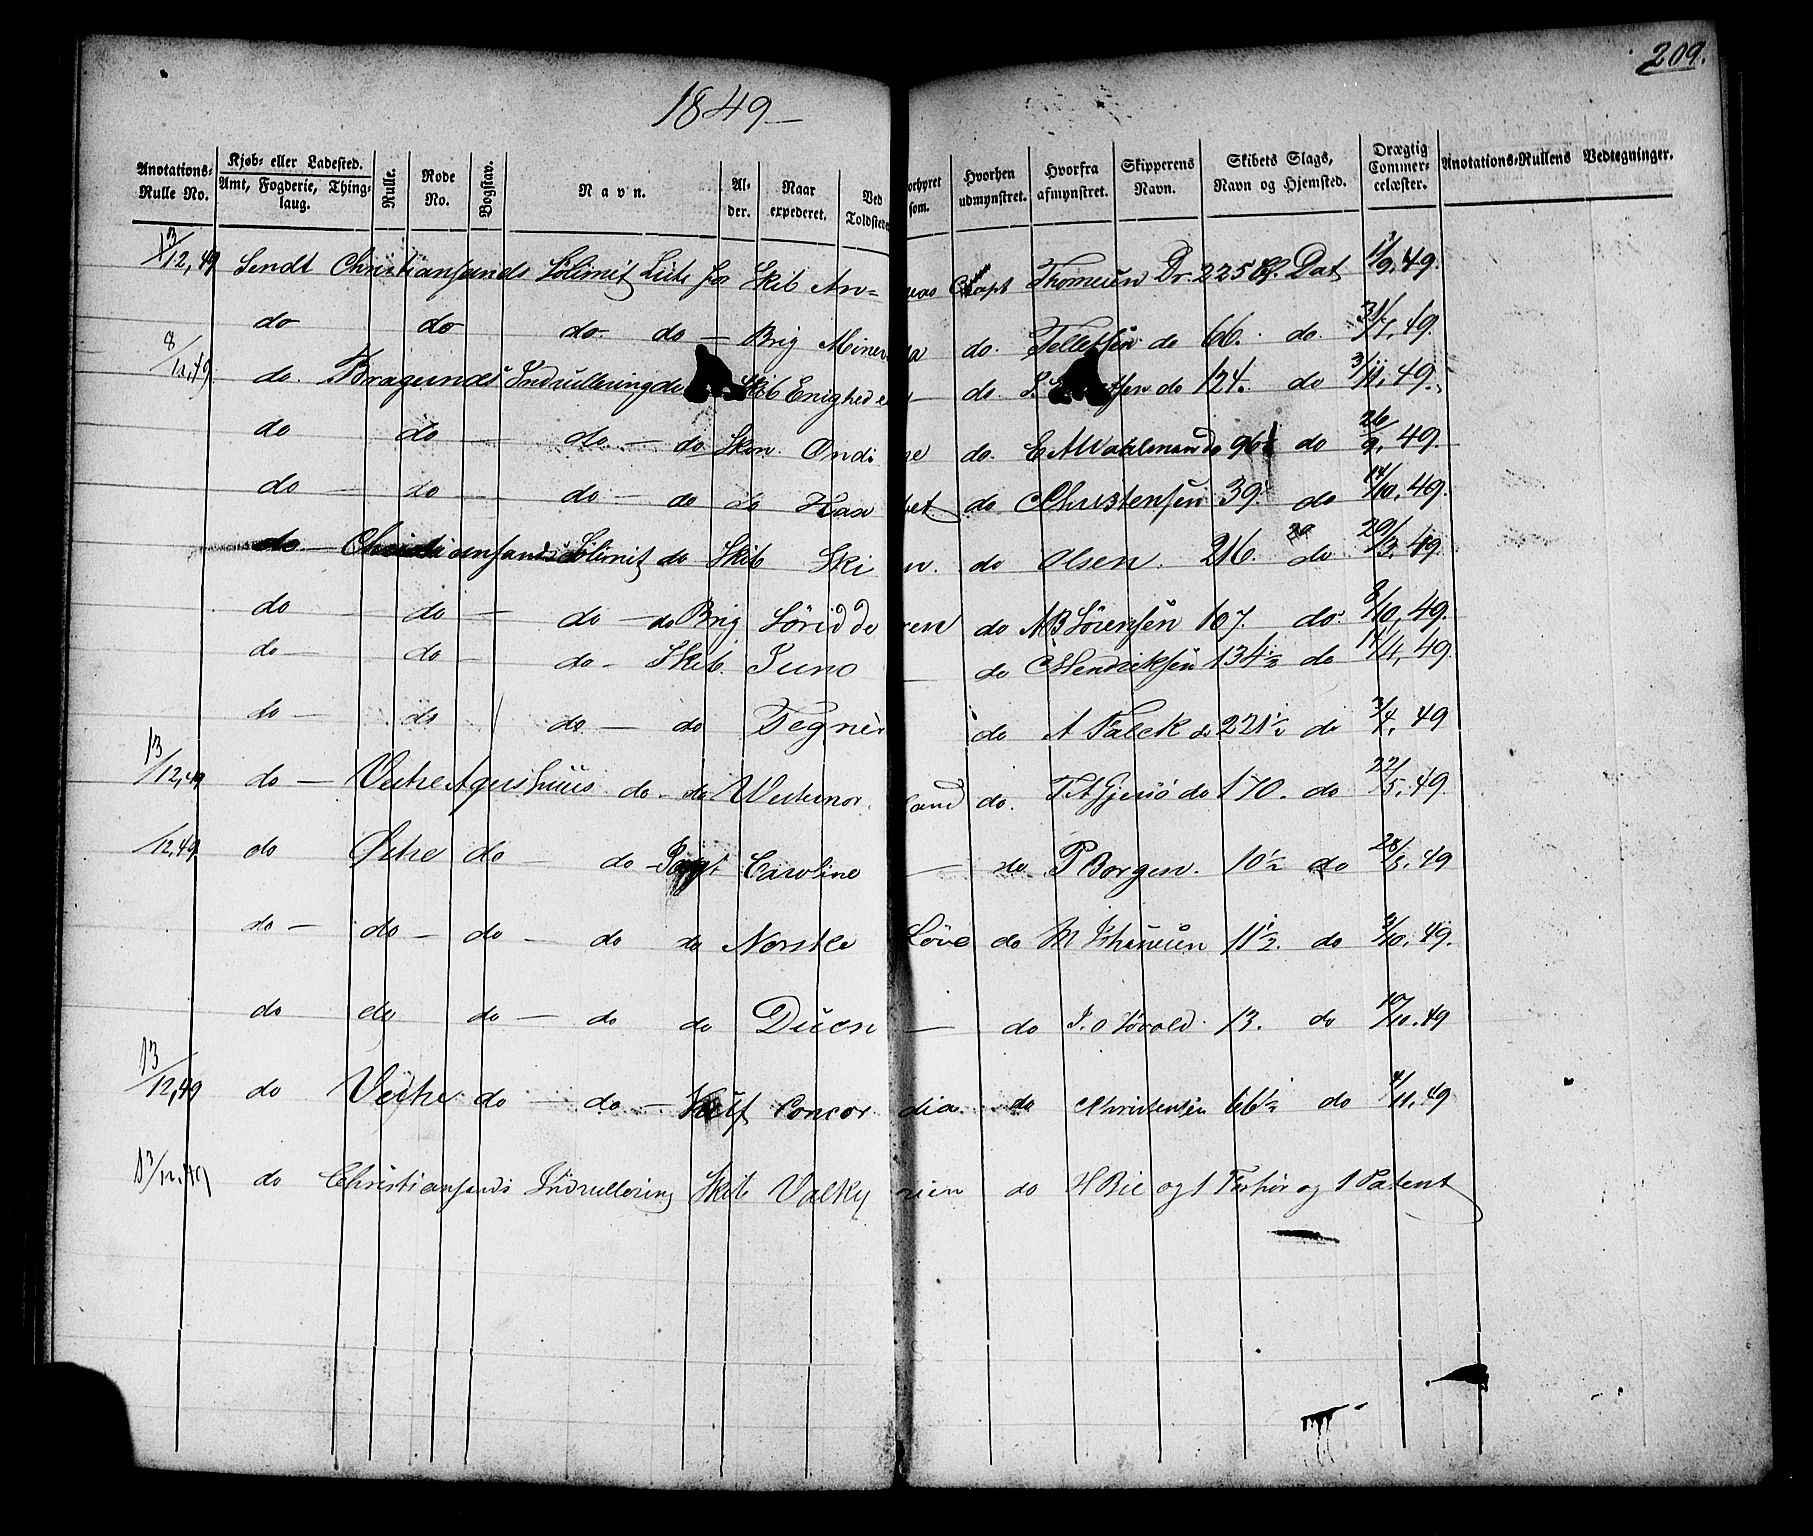 209.
1849
Anotations- Rulle No. Kjøb- eller Ladested. Amt, Fogderie, Thing- laug. Rulle. Rode No. Bogstav. Navn. Al- der. Naar expederet. Ved Toldstedet orbyret som. Hvorhen udmynstret. Hvorfra afmynstret. Skipperens Navn. Skibets Slags, Navn og Hjemsted. Drægtig Commer- celæster. Anotations-Rullens Vedtegninger.
13/12, 49 Sendt Christiansands Sølimit Liste for Skib Capt Thomesen Dr. 225 Cl. Dat 1/9, 49.
do do do. do — Brig Minerva do. Tellefsen do 66. do. 31/7, 49.
8/12, 49 do. Bragernes Indrullering do Skib Enigheden — do. do 124. do 3/11, 49.
do do — do. — do Skon. Ondine do. E A Wahlman do 96 do 26/9, 49.
do — do — do — do do Haabet do Christensen 39. do 14/10, 49.
do. — Christiansands Sølimit do Skib Ski n. do Olsen. 216. do 20/3, 49
do — do — do — do Brig do A B Sørensen 107. do. 8/10, 49.
do — do — do - Skib. Juno — do C Hendriksen 134 1/2 do 14/4, 49.
do — do do — do Tegner do A Falck do 221 1/2 do 3/4, 49
13/12, 49 do — Vestre Agershuus do - do Westernorland do. do 170. do 22/5, 49.
/12, 49 do Østre do — do - Jagt Caroline — do P Borgen. 10 1/2 do 28/5, 49
do — do — do — do do Norske Løve do M Johannesen 11 1/2. do 3/10, 49.
do do do — do do Duen — do 13. do 10/10. 49
13/12, 49 do Vestre do — do — Concordia do Christensen 66 1/2 do 4/11, 49
13/12, 49 do Christiansands Indrullering Skib Valkyrien do H Bie og 1 Forhør og 1 Patent